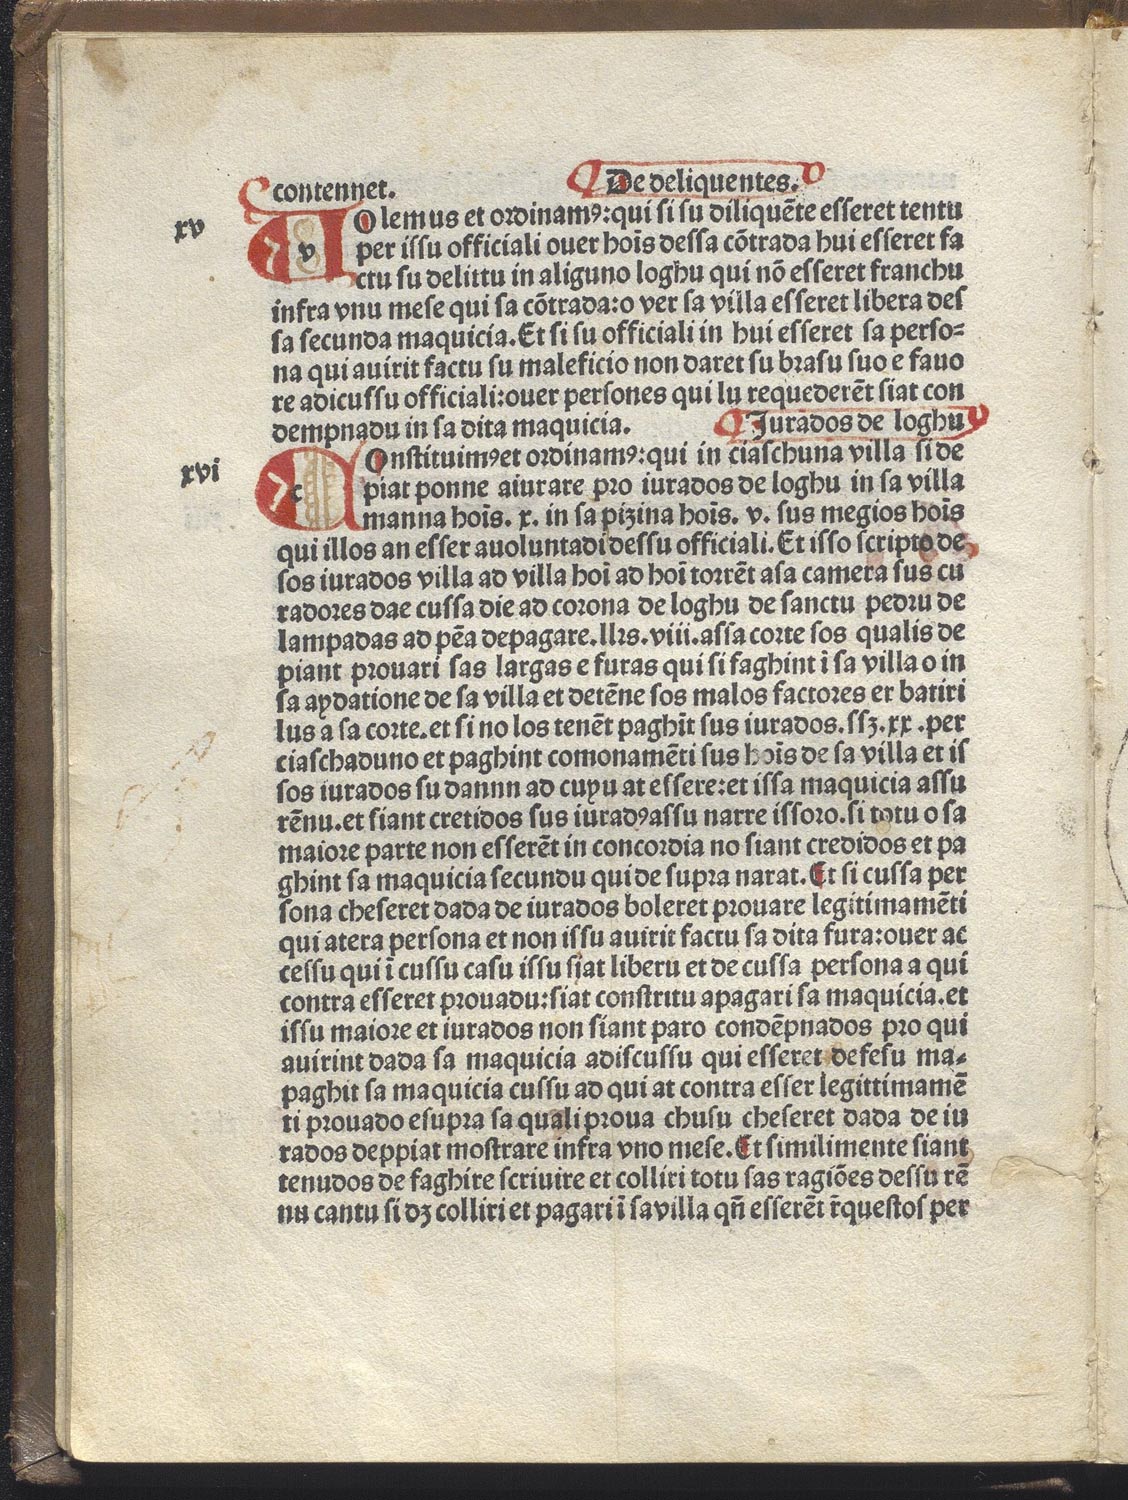 contennet. De deliquentes.
xv
VOlemus et ordinamꝰ:qui si su diliquẽte esseret tentu
per issu officiali ouer hoĩs dessa cõtrada hui esseret fa
ctu su delittu in aliguno loghu qui nõ esseret franchu
infra vnu mese qui sa cõtrada:o ver sa villa esseret libera des
sa secunda maquicia.Et si su officiali in hui esseret sa perso=
na qui auirit factu su maleficio non daret su brasu suo e fauo
re adicussu officiali:ouer persones qui lu requederẽt siat con
dempnadu in sa dita maquicia. Jurados de loghu
xvi
COnstituimꝰet ordinamꝰ:qui in ciaschuna villa si de
piat ponne aiurare pro iurados de loghu in sa villa
manna hoĩs. x. in sa pizina hoĩs. v. sus megios hoĩs
qui illos an esser auoluntadi dessu officiali.Et isso scripto de
sos iurados villa ad villa hoĩ ad hoĩ torrẽt asa camera sus cu
radores dae cussa die ad corona de loghu de sanctu pedru de
lampadas ad pẽa depagare.llrs.viii.assa corte sos qualis de
piant prouari sas largas e furas qui si faghint ĩ sa villa o in
sa aydatione de sa villa et detẽne sos malos factores er batiri
lus a sa corte.et si no los tenẽt paghĩt sus iurados.ssʒ.xx.per
ciaschaduno et paghint comonamẽti sus hoĩs de sa villa et is
sos iurados su dannn ad cuyu at essere:et issa maquicia assu
rẽnu.et siant cretidos sus iuradꝰassu narre issoro.si totu o sa
maiore parte non esserẽt in concordia no siant credidos et pa
ghint sa maquicia secundu qui de supra narat.Et si cussa per
sona cheseret dada de iurados boleret prouare legitimamẽti
qui atera persona et non issu auirit factu sa dita fura:ouer ac
cessu qui ĩ cussu casu issu siat liberu et de cussa persona a qui
contra esseret prouadu:siat constritu apagari sa maquicia.et
issu maiore et iurados non siant paro condẽpnados pro qui
auirint dada sa maquicia adiscussu qui esseret defesu ma=
paghit sa maquicia cussu ad qui at contra esser legittimamẽ
ti prouado esupra sa quali proua chusu cheseret dada de iu
rados deppiat mostrare infra vno mese.Et similimente siant
tenudos de faghire scriuire et colliri totu sas ragiões dessu rẽ
nu cantu si dʒ colliri et pagari ĩ sa villa qñ esserẽt r̃questos per